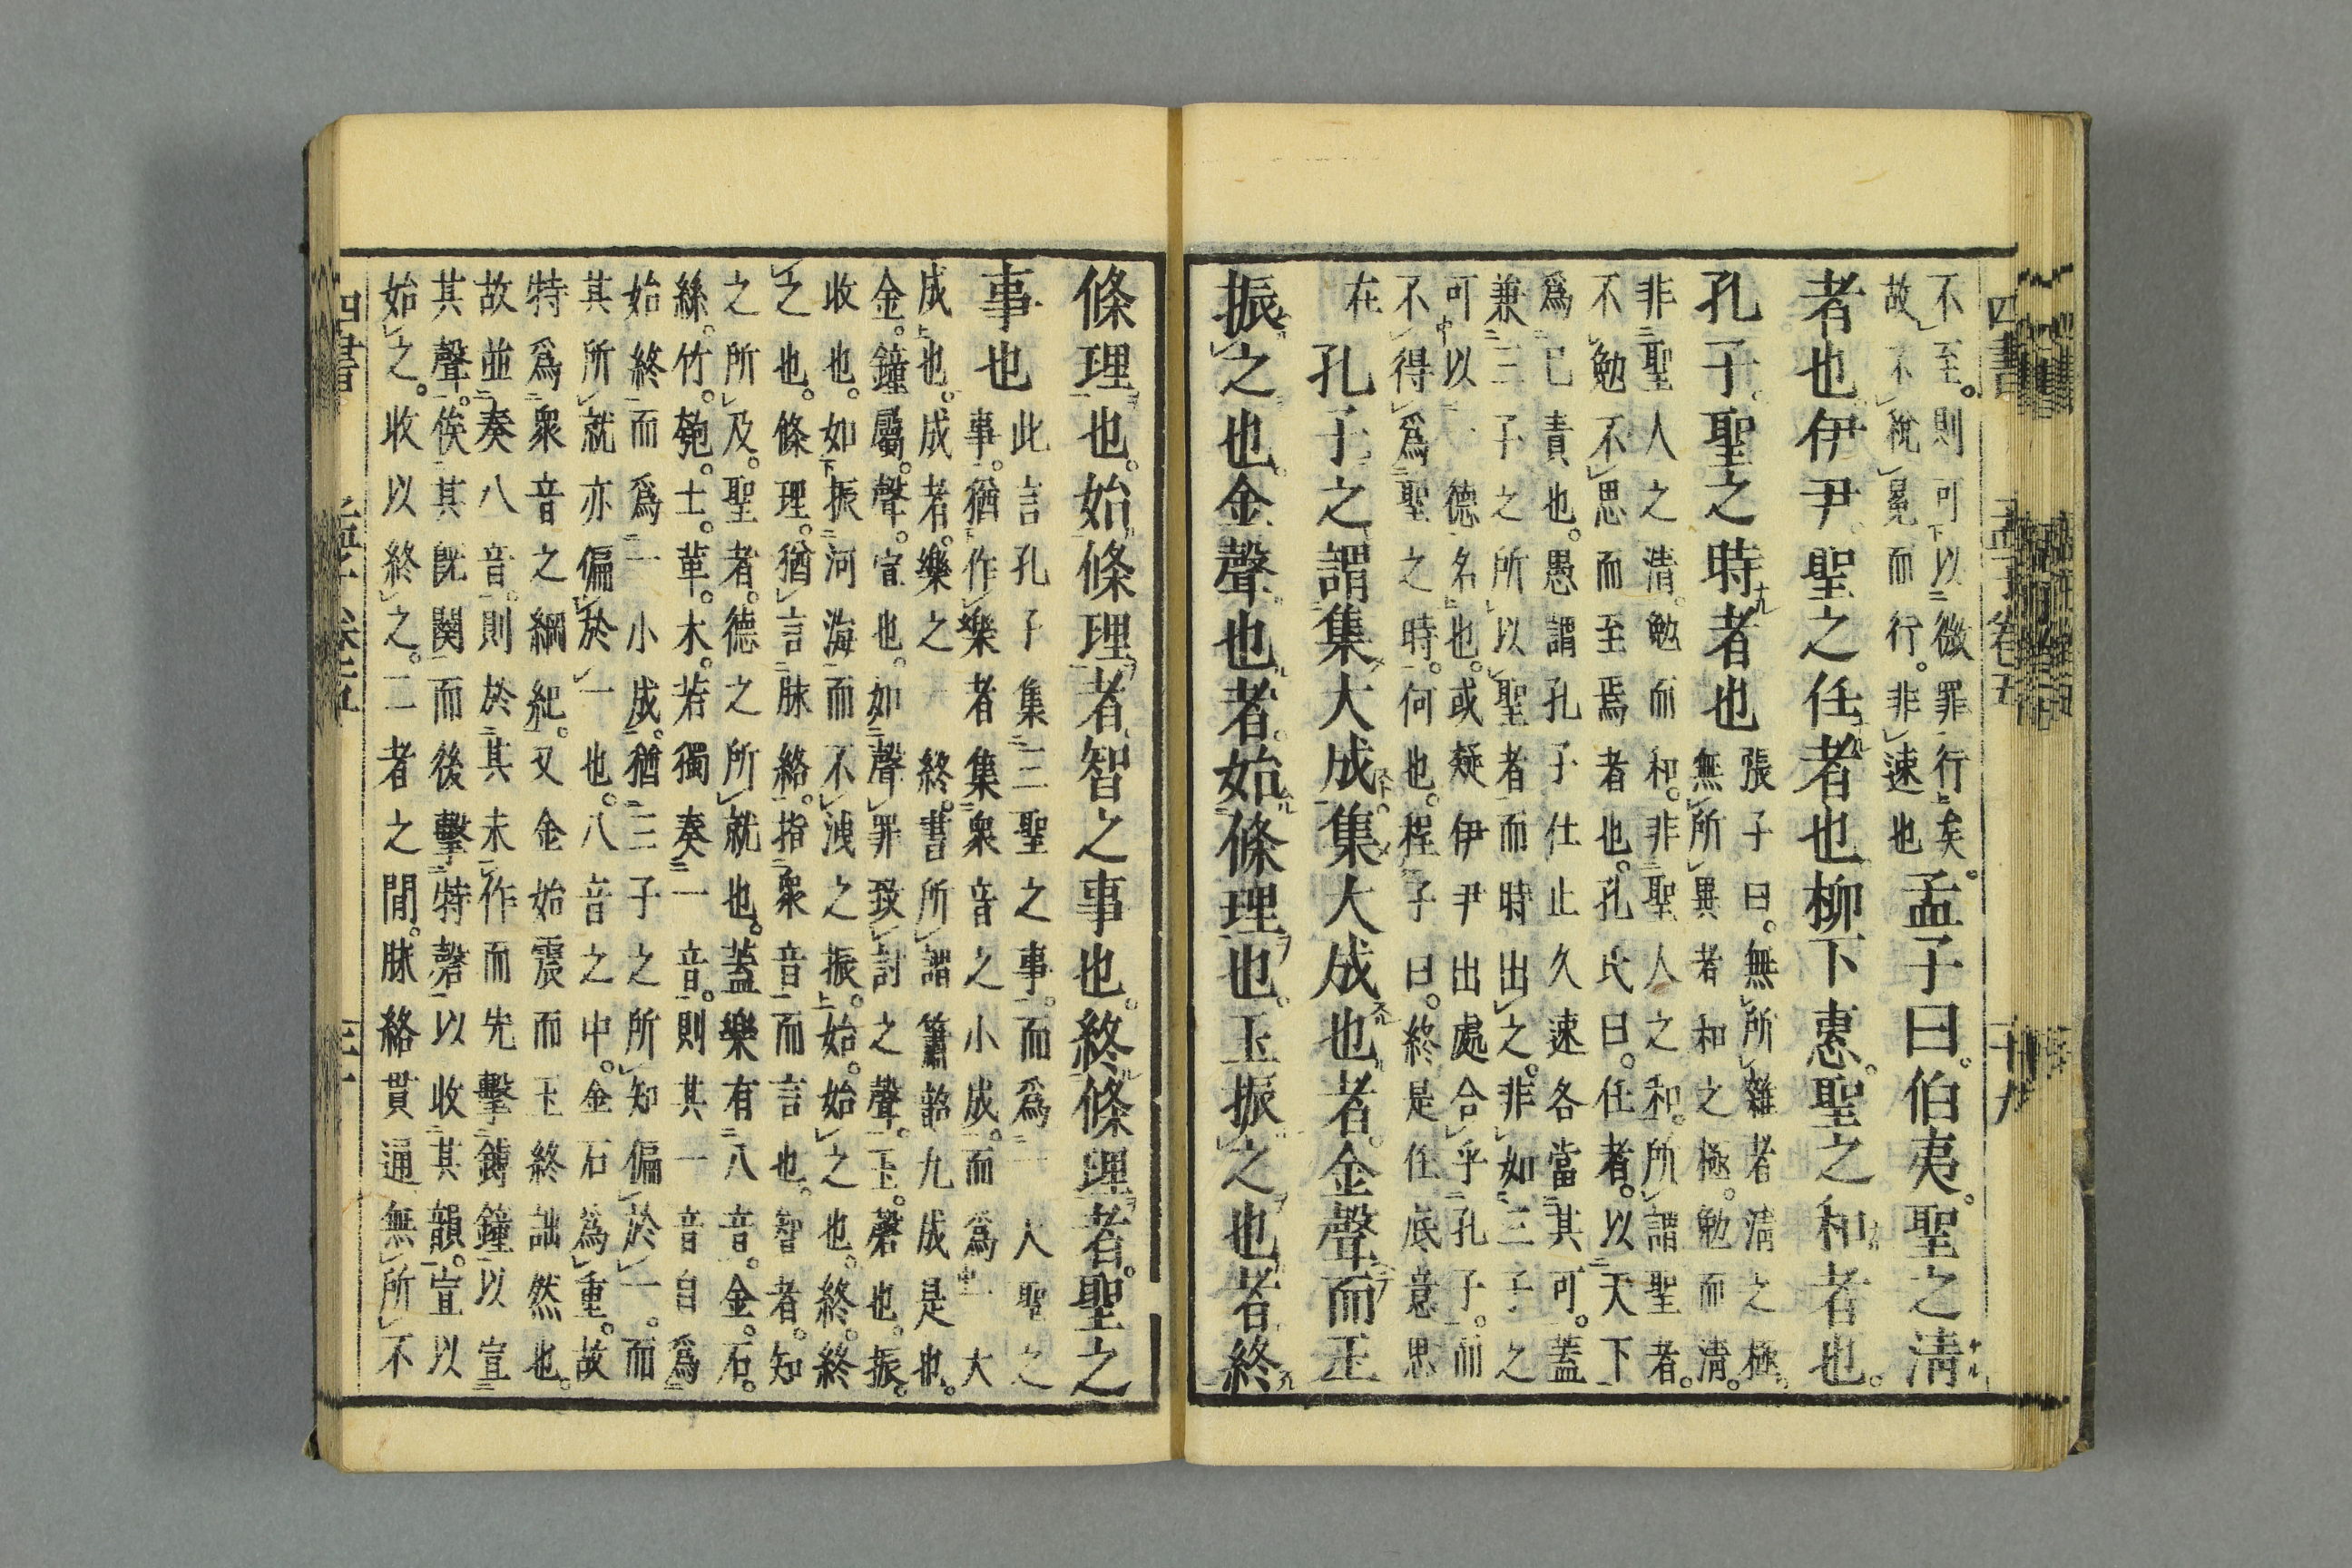 四書 孟子卷五 二十九
不至。則可以微罪行矣。孟子曰。伯夷。聖之淸
故不稅冕而行。非速也
者也。伊尹。聖之任者也。柳下惠。聖之和者也。
孔子。聖之時者也
張子曰。無所雜者淸之極。
無所異者和之極。勉而淸。
非聖人之淸。勉而和。非聖人之和。所謂聖者。
不勉不思而至焉者也。孔氏曰。任者。以天下
爲己責也。愚謂孔子仕止久速各當其可。蓋
兼三子之所以聖者而時出之。非如三子之
可以一德名也。或疑伊尹出處合乎孔子。而
不得爲聖之時。何也。程子曰。終是任底意思
在
孔子之謂集大成。集大成也者。金聲而玉
振之也。金聲也者。始條理也。玉振之也者。終
條理也。始條理者。智之事也。終條理者。聖之
事也
此言孔子集三聖之事。而爲一大聖之
事。猶作樂者集衆音之小成。而爲一大
成也。成者。樂之一終。書所謂簫韶九成是也。
金。鐘屬。聲。宣也。如聲罪致討之聲。玉。磬也。振。
收也。如振河海而不洩之振。始。始之也。終。終
之也。條理。猶言脉絡。指衆音而言也。智者。知
之所及。聖者。德之所就也。蓋樂有八音。金。石。
絲。竹。匏。土。革。木。若獨奏一音。則其一音自爲
始終而爲一小成。猶三子之所知偏於一。而
其所就亦偏於一也。八音之中。金石爲重。故
特爲衆音之綱紀。又金始震而玉終詘然也。
故並奏八音。則於其未作而先擊鎛鐘以宣
其聲。俟其旣闋而後擊特磬以收其韻。宣以
始之。收以終之。二者之間。脉絡貫通無所不
四書 孟子卷五